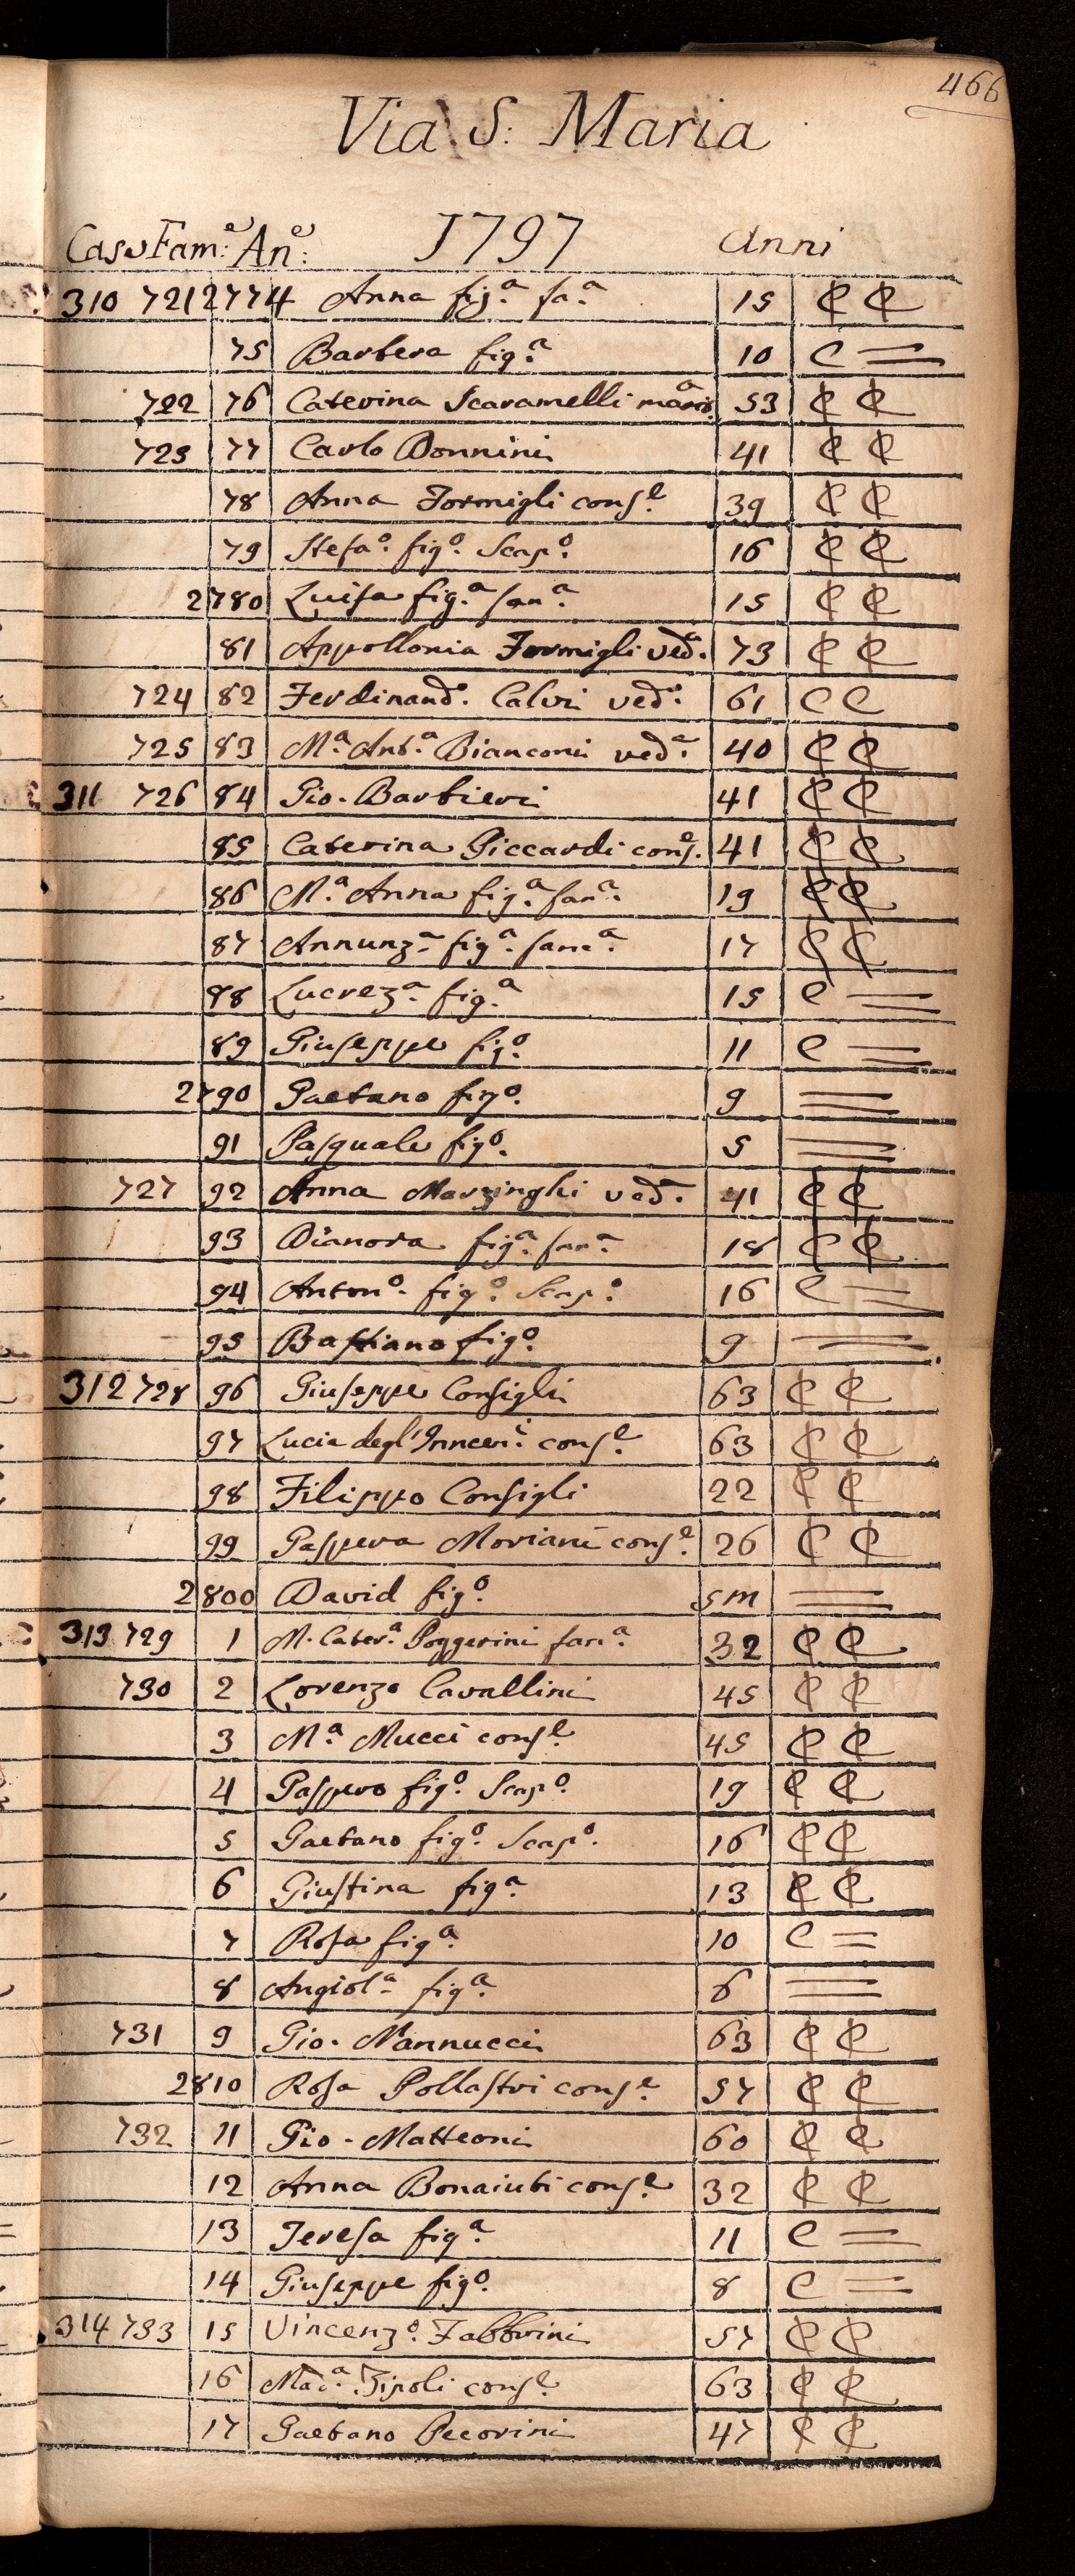 466
Via S: Maria
Case Fam.e An.e: 1797 Anni
310 721 2774 Anna fig.a fa.a 15 C C
75 Barbera fig.a 10 C =
722 76 Caterina Scaramelli 53 C C
723 77 Carlo Bonnini 41 C C
78 Anna Formigli cons.e 39 C C
79 Stefa.o fig.o Scap.o 16 C C
2780 Luisa fig.a fan.a 15 C C
81 Appollonia Formigli ved.a 73 C C
724 82 Ferdinand.o Calvi ved.o 61 C C
725 83 M.a Ant.a Bianconi ved.a 40 C C
311 726 84 Gio. Barbieri 41 C C
85 Caterina Piccardi cons.e 41 C C
86 M.a Anna fig.a fan.a 19 C C
87 Annunz.a fig.a fanc.a 17 C C
88 Lucrez.a fig.a 15 C =
89 Giuseppe fig.o 11 C =
2790 Gaetano fig.o 9 =
91 Pasquale fig.o 5 =
727 92 Anna Marzinghi ved.a 41 C C
93 Dianora fig.a fan.a 18 C C
94 Anton.o fig.o Scap.o 16 C =
95 Bastiano fig.o 9 =
312 728 96 Giuseppe Consigli 63 C C
97 Lucia degl'Inncen.i cons.e 63 C C
98 Filippo Consigli 22 C C
99 Gaspera Moriani cons.e 26 C C
2800 David fig.o 5m =
313 729 1 M. Cater.a Poggerini fan.a 32 C C
730 2 Lorenzo Cavallini 45 C C
3 M.a Mucci cons.e 45 C C
4 Gaspero fig.o Scap.o 19 C C
5 Gaetano fig.o Scap.o 16 C C
6 Giustina fig.a 13 C C
7 Rosa fig.a 10 C =
8 Angiol.a fig.a 6 =
731 9 Gio. Nannucci 63 C C
2810 Rosa Pollastri cons.e 57 C C
732 11 Gio. Matteoni 60 C C
12 Anna Bonaiuti cons.e 32 C C
13 Teresa fig.a 11 C =
14 Giuseppe fig.o 8 C =
314 733 15 Vincenz.o Fabbrini 57 C C
16 Mad.a Tipoli cons.e 63 C C
17 Gaetano Pecorini 47 C C